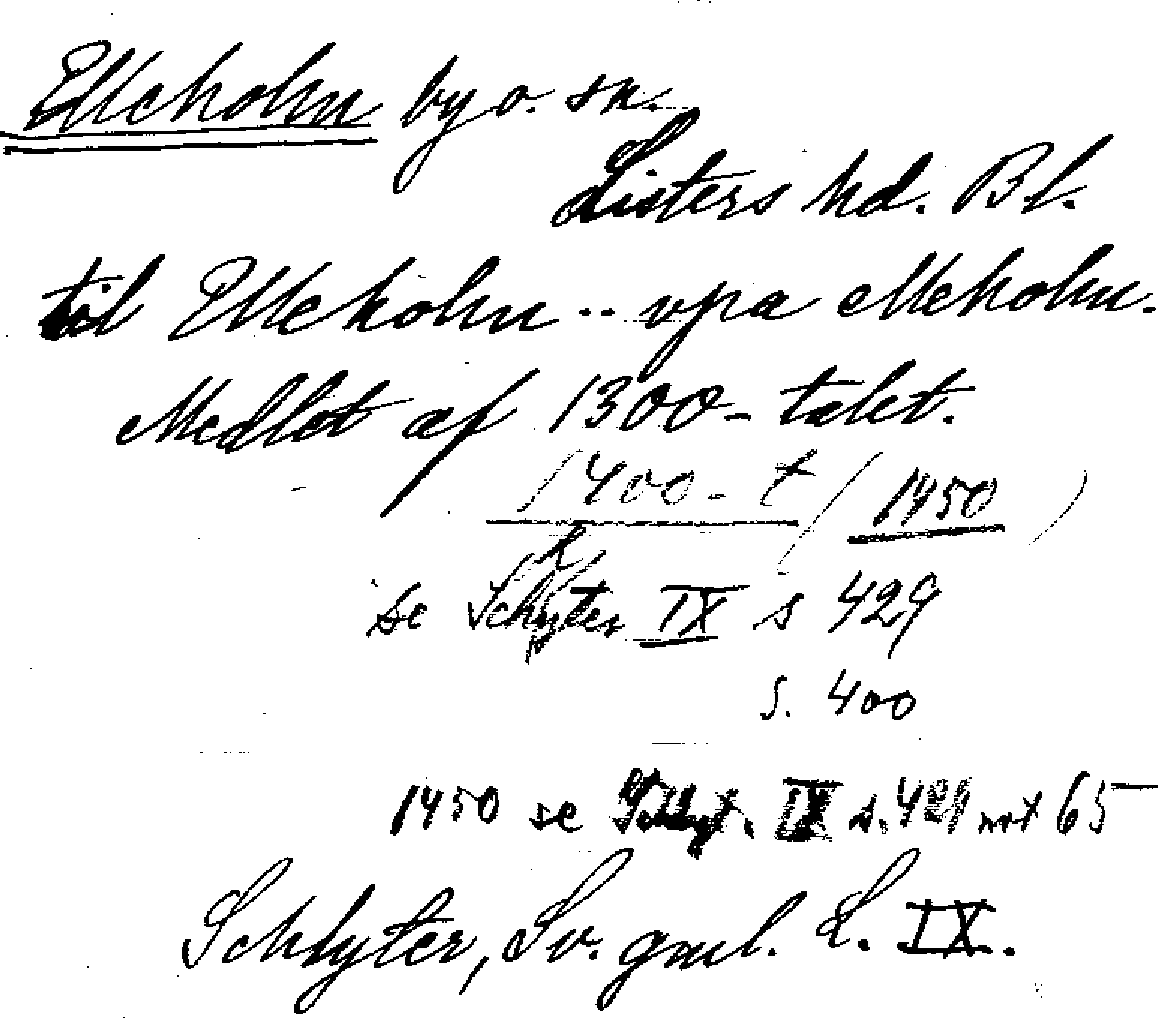 Elleholm by o. sn.
Listers hd. Bl.
til Elleholm .. vpa elleholm.
Medlöt af 1300-talet.
1400-t (1450)
se Schlyter IX s 429
s. 400
1450 se Schlyt. IX s. 429 not 65
Schlyter, Sv. gml. L. IX.